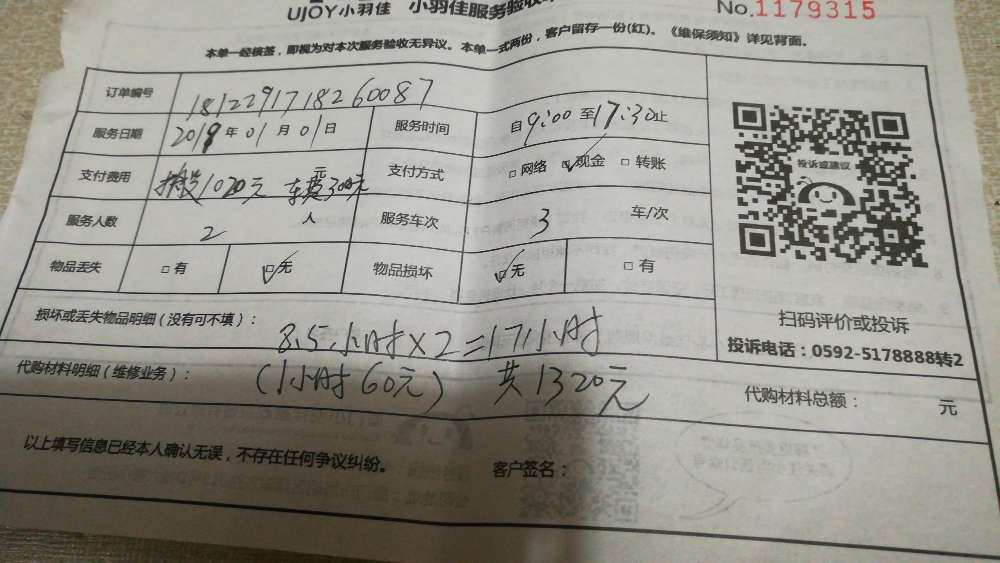 UJOY小羽佳 小羽佳服务验收单 No.1179315
本单一经核签，即视为对本次服务验收无异议。本单一式两份，客户留存一份(红)。《维保须知》详见背面。
订单编号 1812291718260087
服务日期 2019年01月01日 服务时间 自9:00至17:30止
支付费用 搬1020元 车费300元 支付方式 □网络 ☑现金 □转账
服务人数 2 人 服务车次 3 车/次
物品丢失 □有 ☑无 物品损坏 ☑无 □有
损坏或丢失物品明细（没有可不填）： 8.5小时×2=17小时
代购材料明细（维修业务）： (1小时60元) 共1320元 代购材料总额： 元
以上填写信息已经本人确认无误，不存在任何争议纠纷。 客户签名：
投诉或建议
扫码评价或投诉
投诉电话：0592-5178888转2